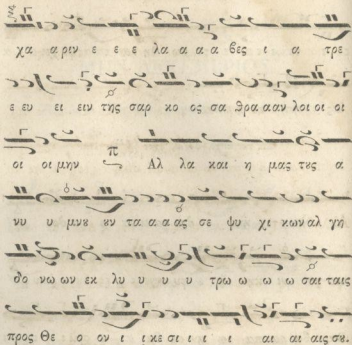 χα α ριν ε ε ε λα α α α βες ι α τρε
ε ευ ει ειν της σαρ κο ος σα θρα α αν λοι οι οι
οι οι μην π Αλ λα και η μας τ8ς α
νυ υ μν8 8ν τα α α ας σε ψυ χι κων αλ γη
δο νω ων εκ λυ υ υ υ τρω ω ω ω σαι ταις
προς Θε ο ον ι ι κε σι ι ι ι αι αι αις σ8.